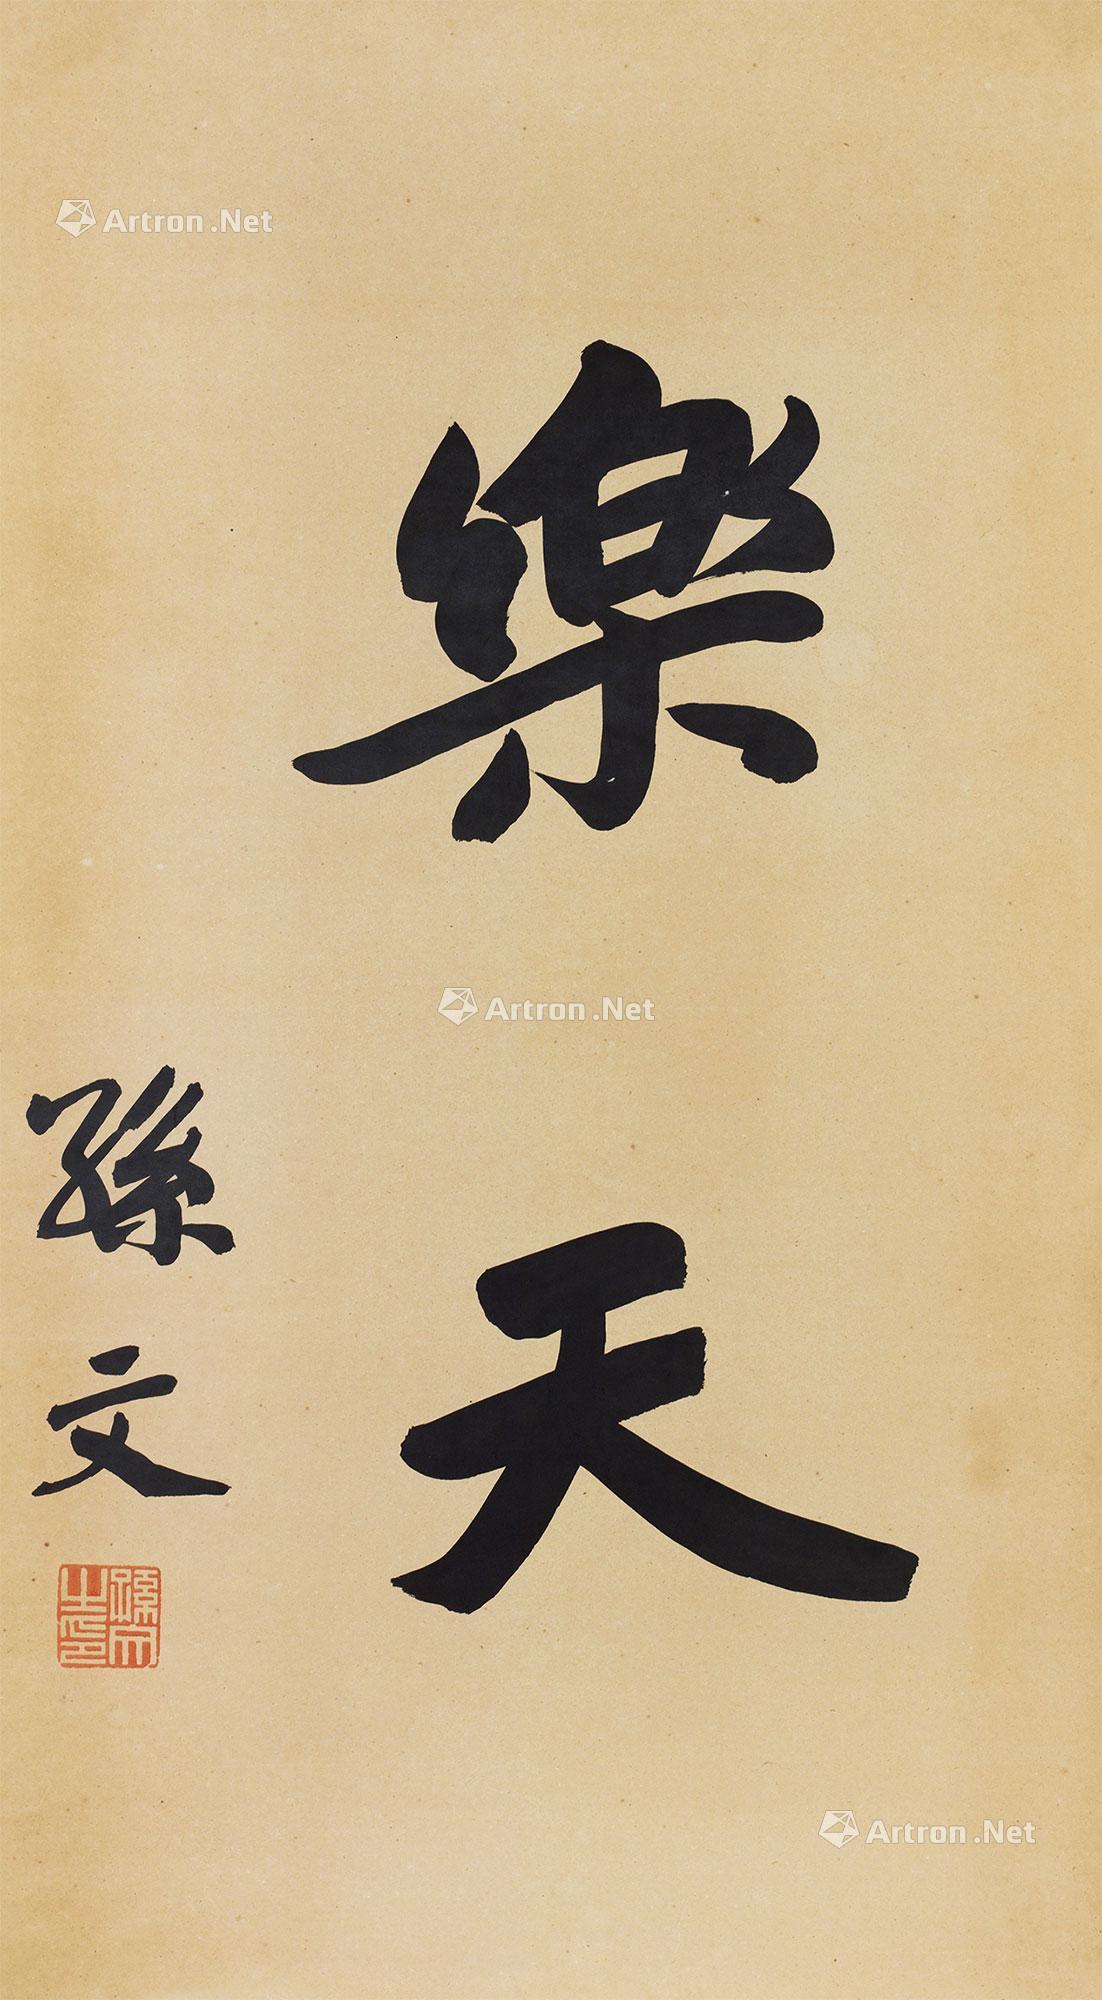 樂天
孫文
孫文之印
Artron.Net
Artron.Net
Artron.Net